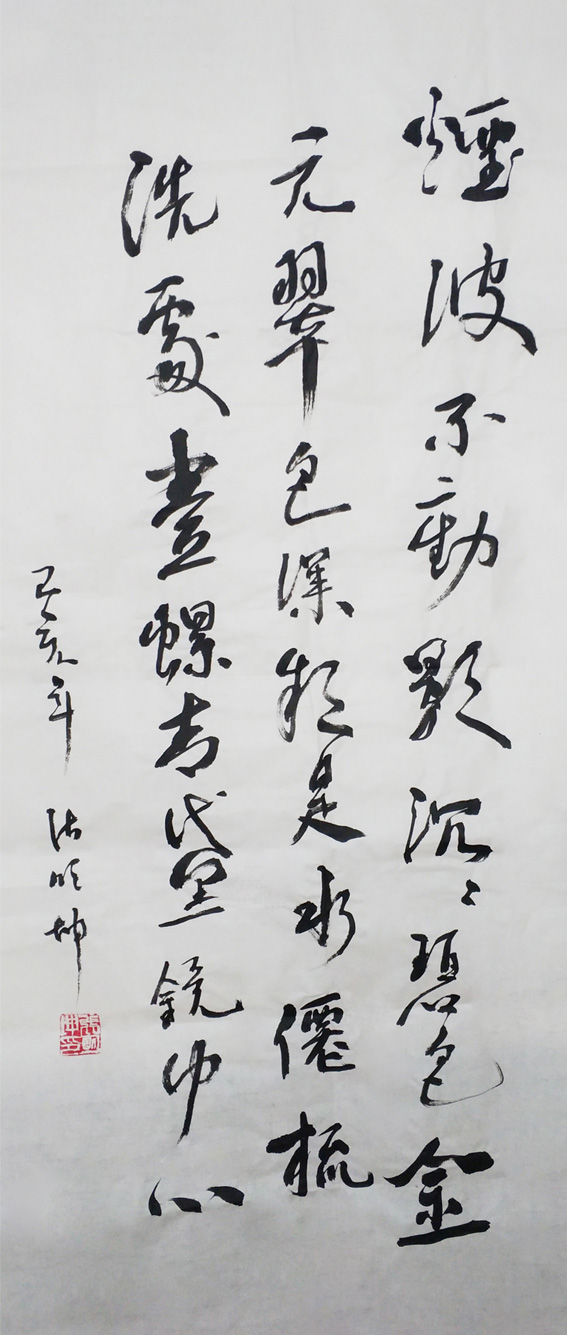 煙波不動影沉〻碧色全
无翠色深疑是水僊梳
洗處壹螺青黛鏡中心
己亥年 张顺坤